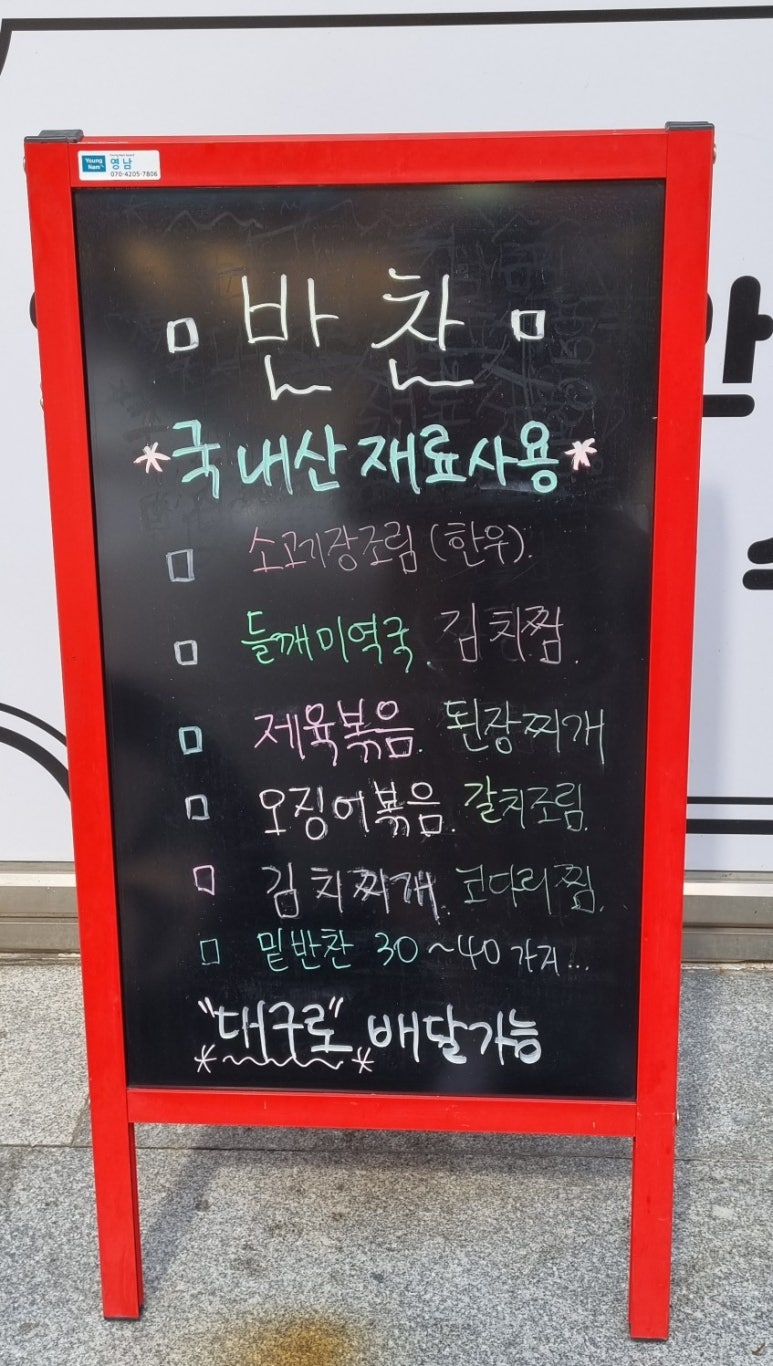 Young Nam 영남
070-4205-7806
▫ 반찬 ▫
*국내산 재료사용*
□ 소고기장조림 (한우).
□ 들깨미역국. 김치찜.
□ 제육볶음. 된장찌개
□ 오징어볶음. 갈치조림.
□ 김치찌개. 코다리찜.
□ 밑반찬 30~40 가지...
"대구로" 배달가능